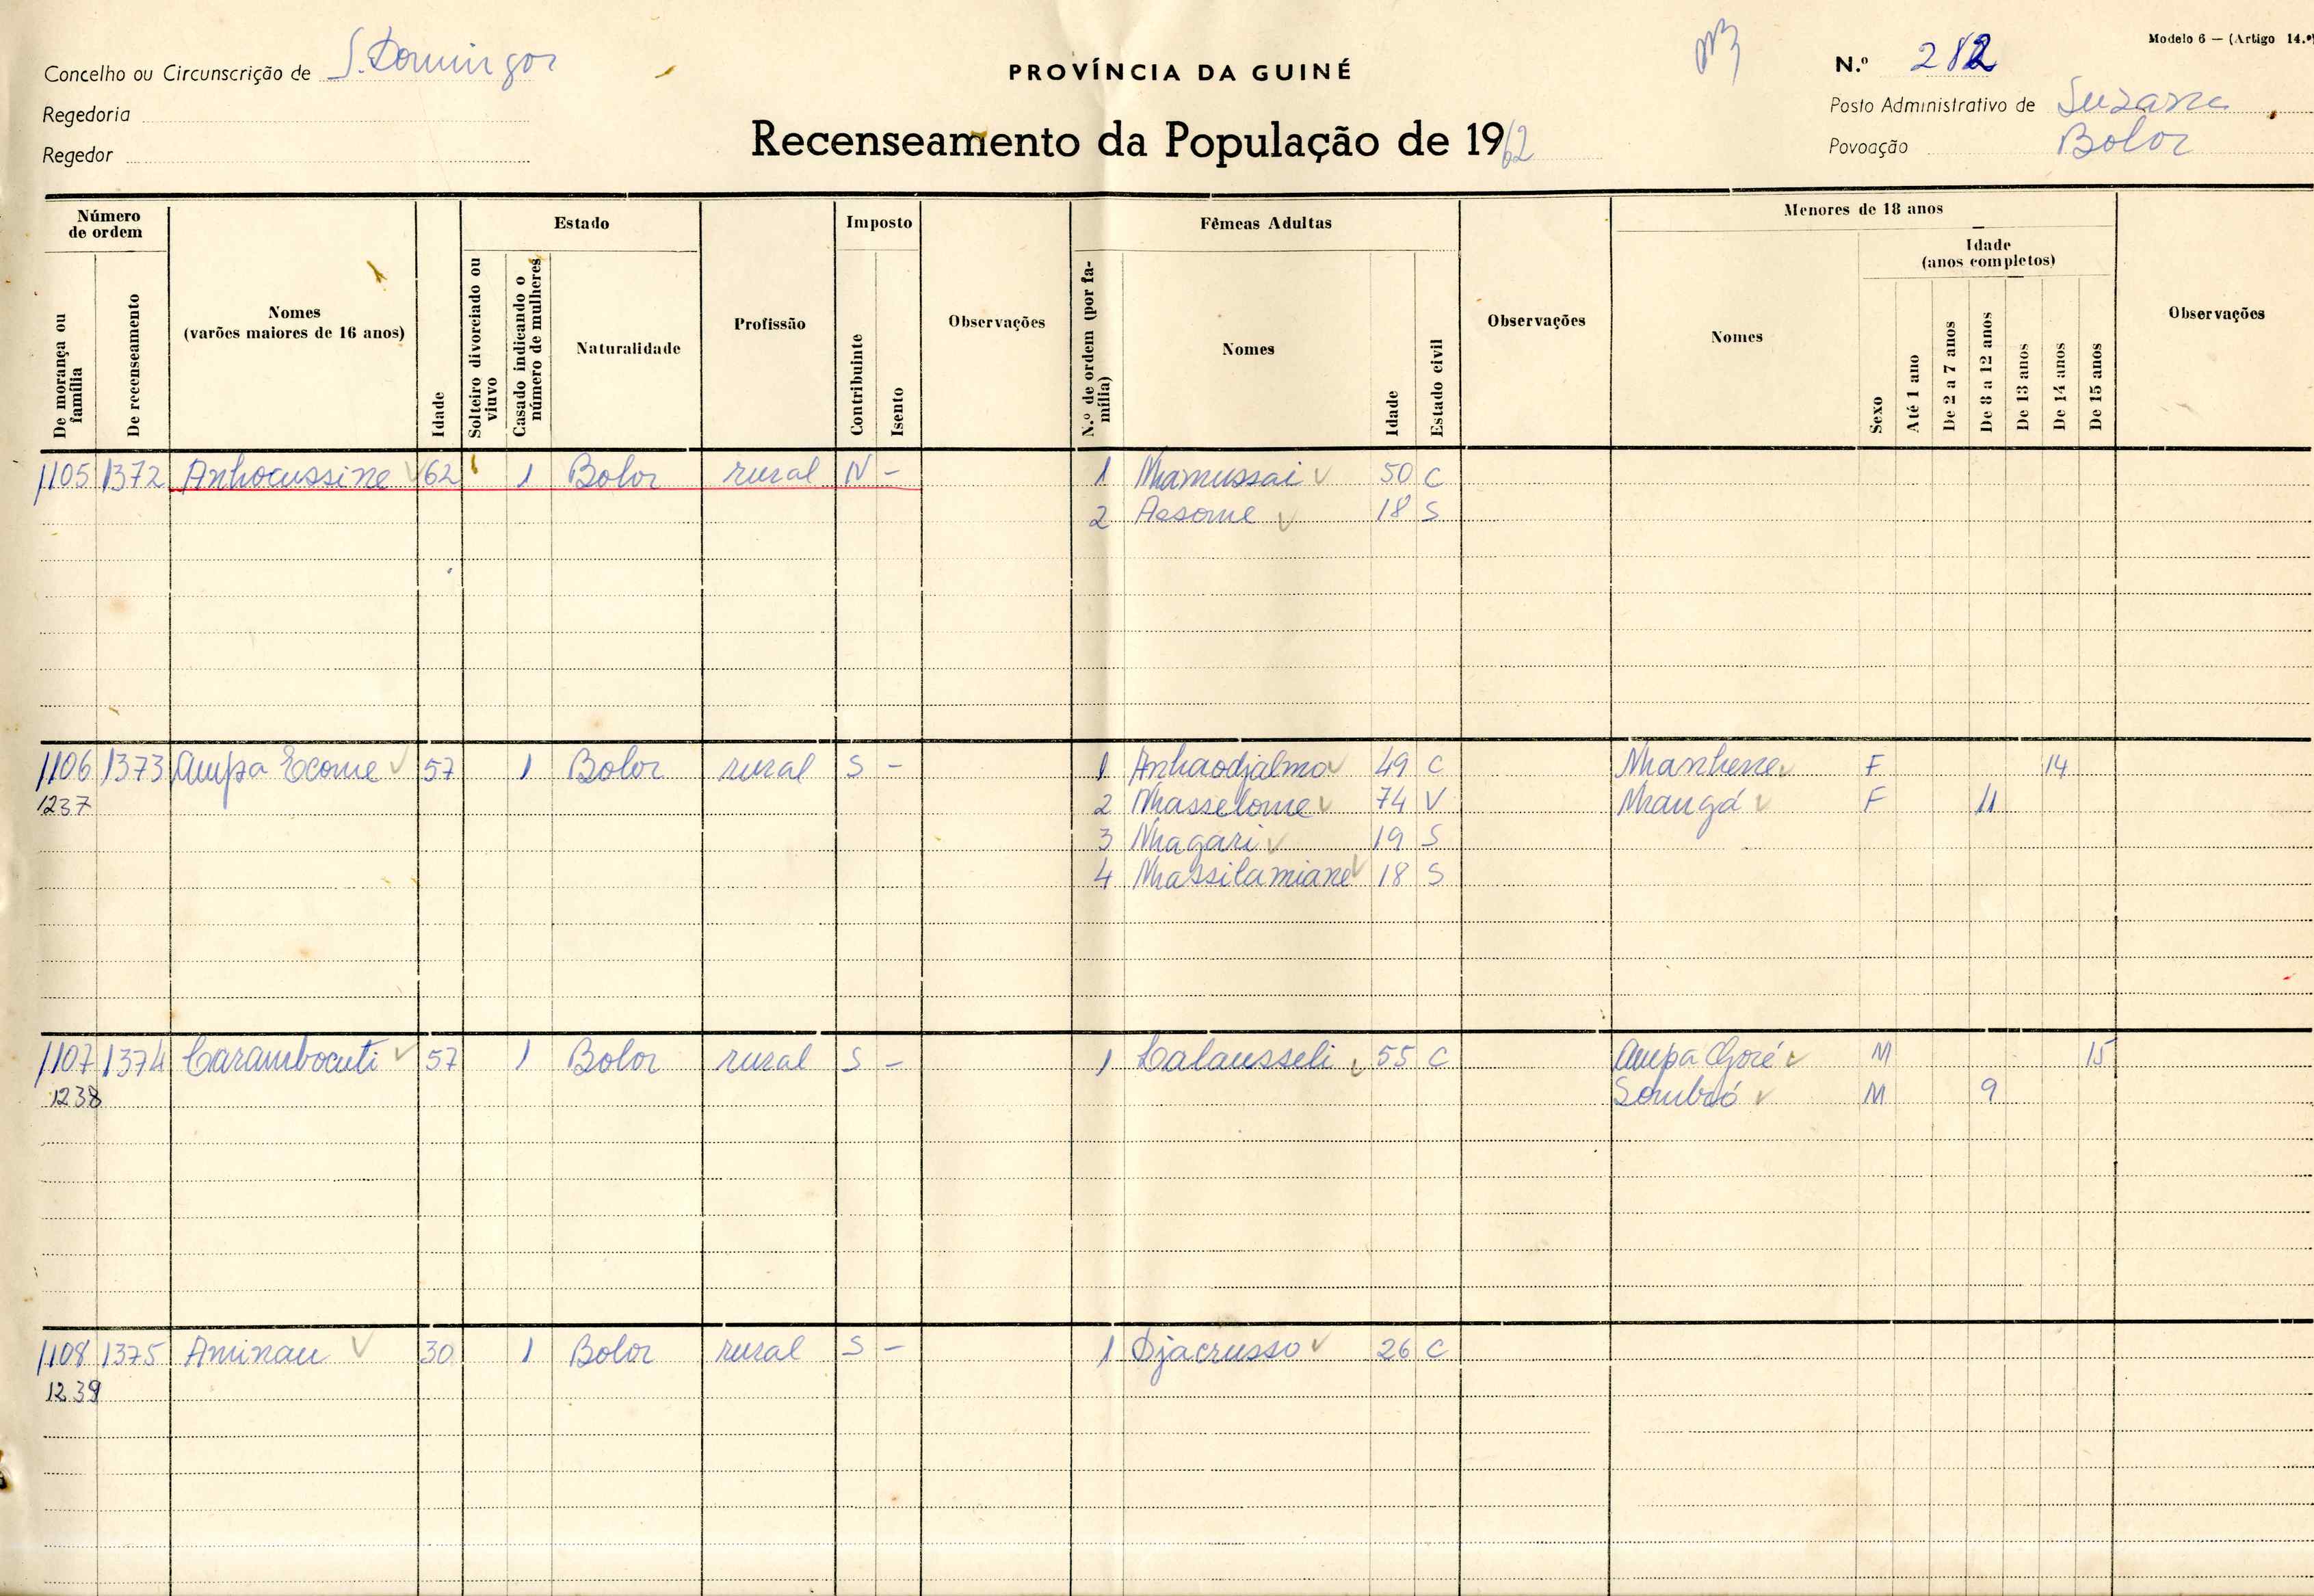 Modelo 6 — (Artigo 14.º)
Concelho ou Circunscrição de S. Domingos
PROVÍNCIA DA GUINÉ
N.º 282
Regedoria
Posto Administrativo de Suzana
Regedor
Recenseamento da População de 1962
Povoação Bolor
Número de ordem
Estado
Imposto
Fêmeas Adultas
Menores de 18 anos
Idade (anos completos)
De morança ou família
De recenseamento
Nomes (varões maiores de 16 anos)
Idade
Solteiro divorciado ou viuvo
Casado indicando o número de mulheres
Naturalidade
Profissão
Contribuinte
Isento
Observações
N.º de ordem (por família)
Nomes
Idade
Estado civil
Observações
Nomes
Sexo
Até 1 ano
De 2 a 7 anos
De 8 a 12 anos
De 13 anos
De 14 anos
De 15 anos
Observações
1105 1372 Anhocussine 62 1 Bolor rural N - 1 Nhamussai 50 C
2 Aesome 18 S
1106 1373 Ampa Ecome 57 1 Bolor rural S - 1 Anhaodjalmo 49 C Nhanhene F 14
1237 2 Nhasselome 74 V Nhangá F 11
3 Nhagari 19 S
4 Nhassilamiane 18 S
1107 1374 Carambocuti 57 1 Bolor rural S - 1 Calausseli 55 C Ampa Goré M 15
1238 Sombró M 9
1108 1375 Aminau 30 1 Bolor rural S - 1 Djacrusso 26 C
1239